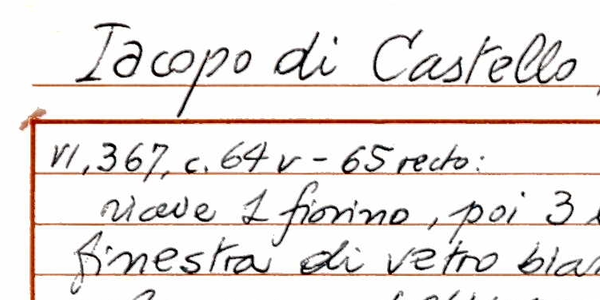 Iacopo di Castello
VI, 367, c. 64 v - 65 recto:
riceve 1 fiorino, poi 3
finestra di vetro